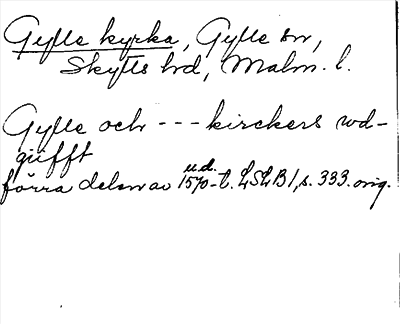 Gylle kyrka, Gylle sn,
Skytts hd, Malm. l.
Gylle och --- kirckers vd-
gifft
förra delen av 1570-t. LSLB1, s. 333. orig.
u.d.